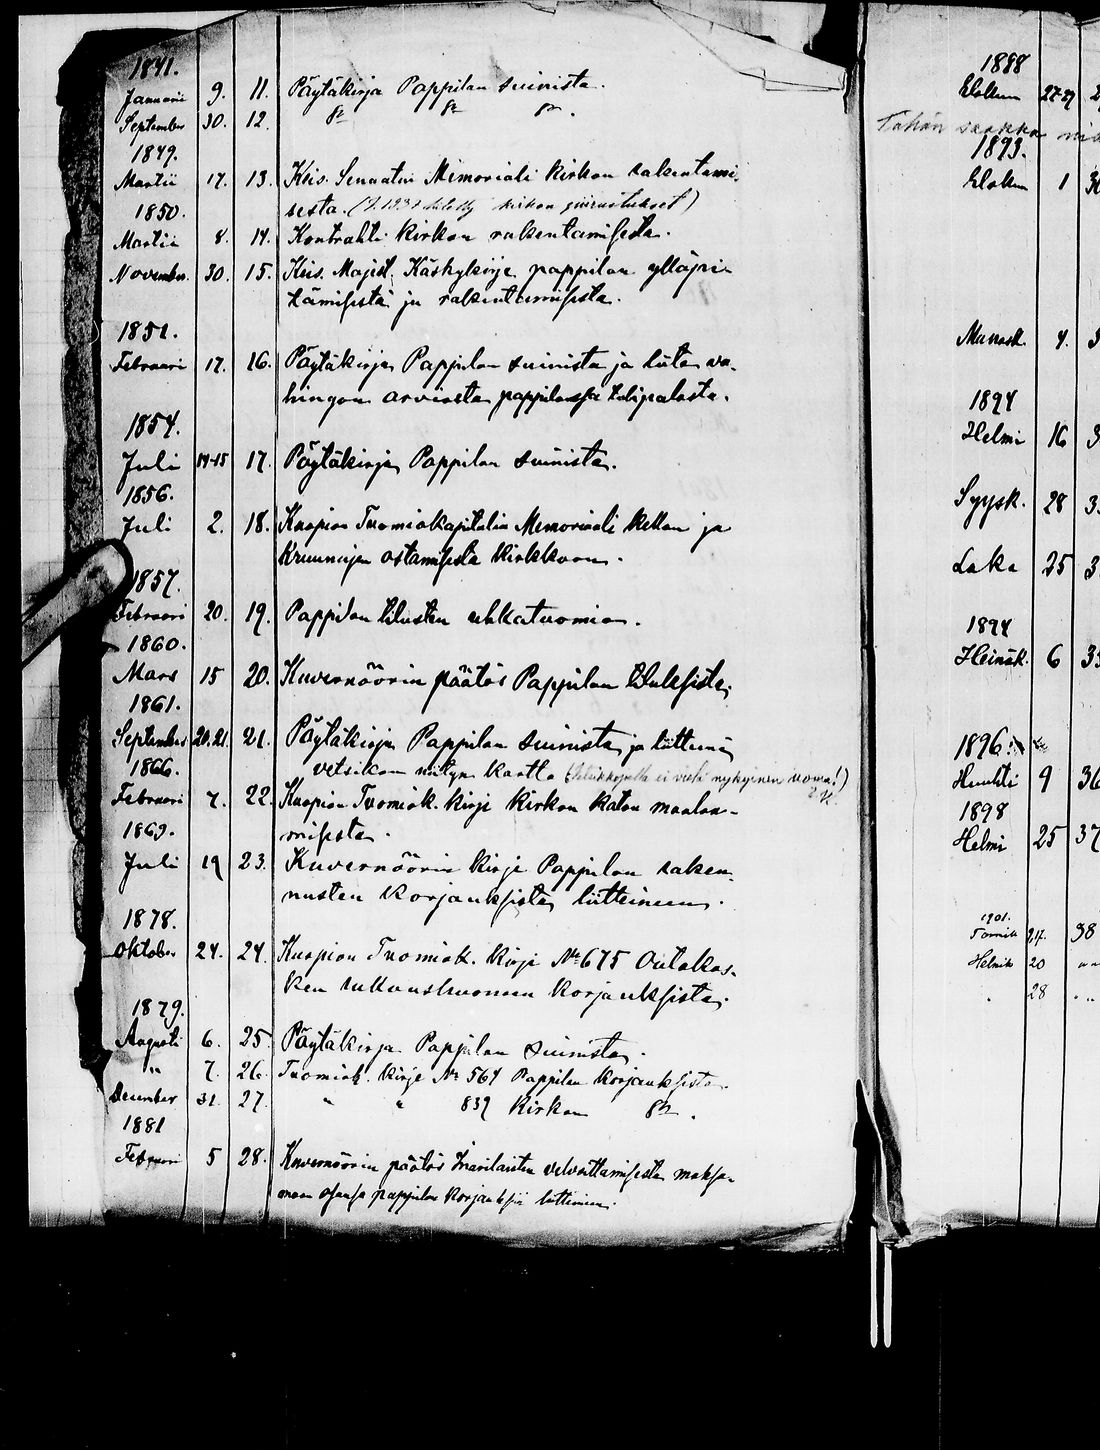 1841.
Januarii 9. 11. Pöytäkirja Pappilan suinista.
September 30. 12. Sn Sn Sn.
1849.
Martii 17. 13. Keis. Senaatin Memoriali kirkon rakentami-
sesta. kirkon piirustukset)
1850.
Martii 8. 14. Kontrahti kirkon rakentamisesta.
November 30. 15. Keis. Majest. Käskykirje pappilan ylläpi-
tämisestä ja rakentamisesta.
1851.
Februari 17. 16. Pöytäkirja Pappilan suinista ja liite va-
hingon arviosta pappilassa tulipalosta.
1854.
Juli 14-15 17. Pöytäkirja Pappilan suinista.
1856.
Juli 2. 18. Kuopion Tuomiokapitulin Memoriali kellon ja
Kruunujen ostamisesta kirkkoon.
1857.
Februari 20. 19. Pappilan tilusten uhkatuomio.
1860.
Mars 15 20. Kuvernöörin päätös Pappilan tiluksista.
1861.
September 20.21. 21. Pöytäkirja Pappilan suinista ja liitteenä
vetsikon niityn kartta ei vielä nykyinen
1866.
Februari 7. 22. Kuopion Tuomiok. kirje kirkon katon maalaa-
misesta.
1869.
Juli 19 23. Kuvernöörin kirje Pappilan raken-
nusten korjauksista liitteineen.
1878.
Oktober 24. 24. Kuopion Tuomiok. kirje No 675 Outakos-
ken rukoushuoneen korjauksista.
1879.
Augusti 6. 25. Pöytäkirja Pappilan suinista.
" 7. 26. Tuomiok. kirje No 564 Pappilan korjauksista.
December 31. 27. " " 839 Kirkon Sn.
1881
Februari 5 28. Kuvernöörin päätös Inarilaisten velvoittamisesta maksa-
maan osansa pappilan korjauksiin liitteineen.
1888
Elokuu 27-29
Tähän saakka
1893.
Elokuu 1
Marrask. 4.
1894
Helmi 16
Syysk. 28
Loka 25
1894
Heinäk. 6
1896.
Huhti 9 36
1898
Helmi 25 37
1901.
Tammik 38
Helmik 20
28